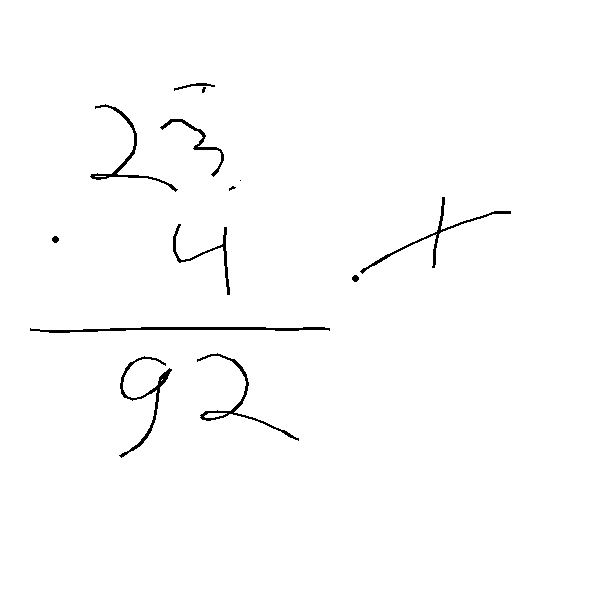 23
· 4 +
92